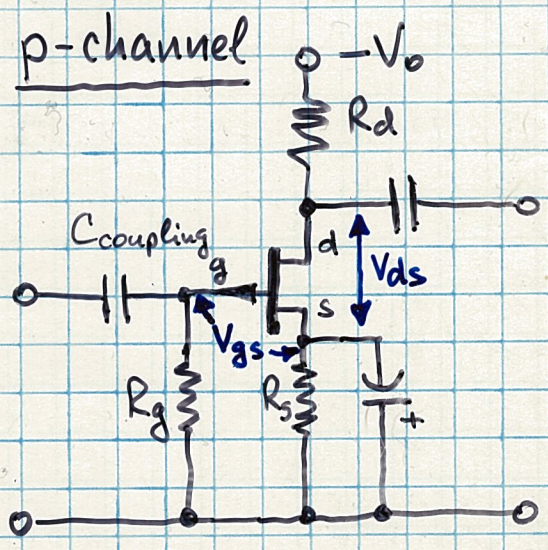 p-channel
-V₀
Rd
Ccoupling
g
d
Vds
s
Vgs
Rg
Rs
+